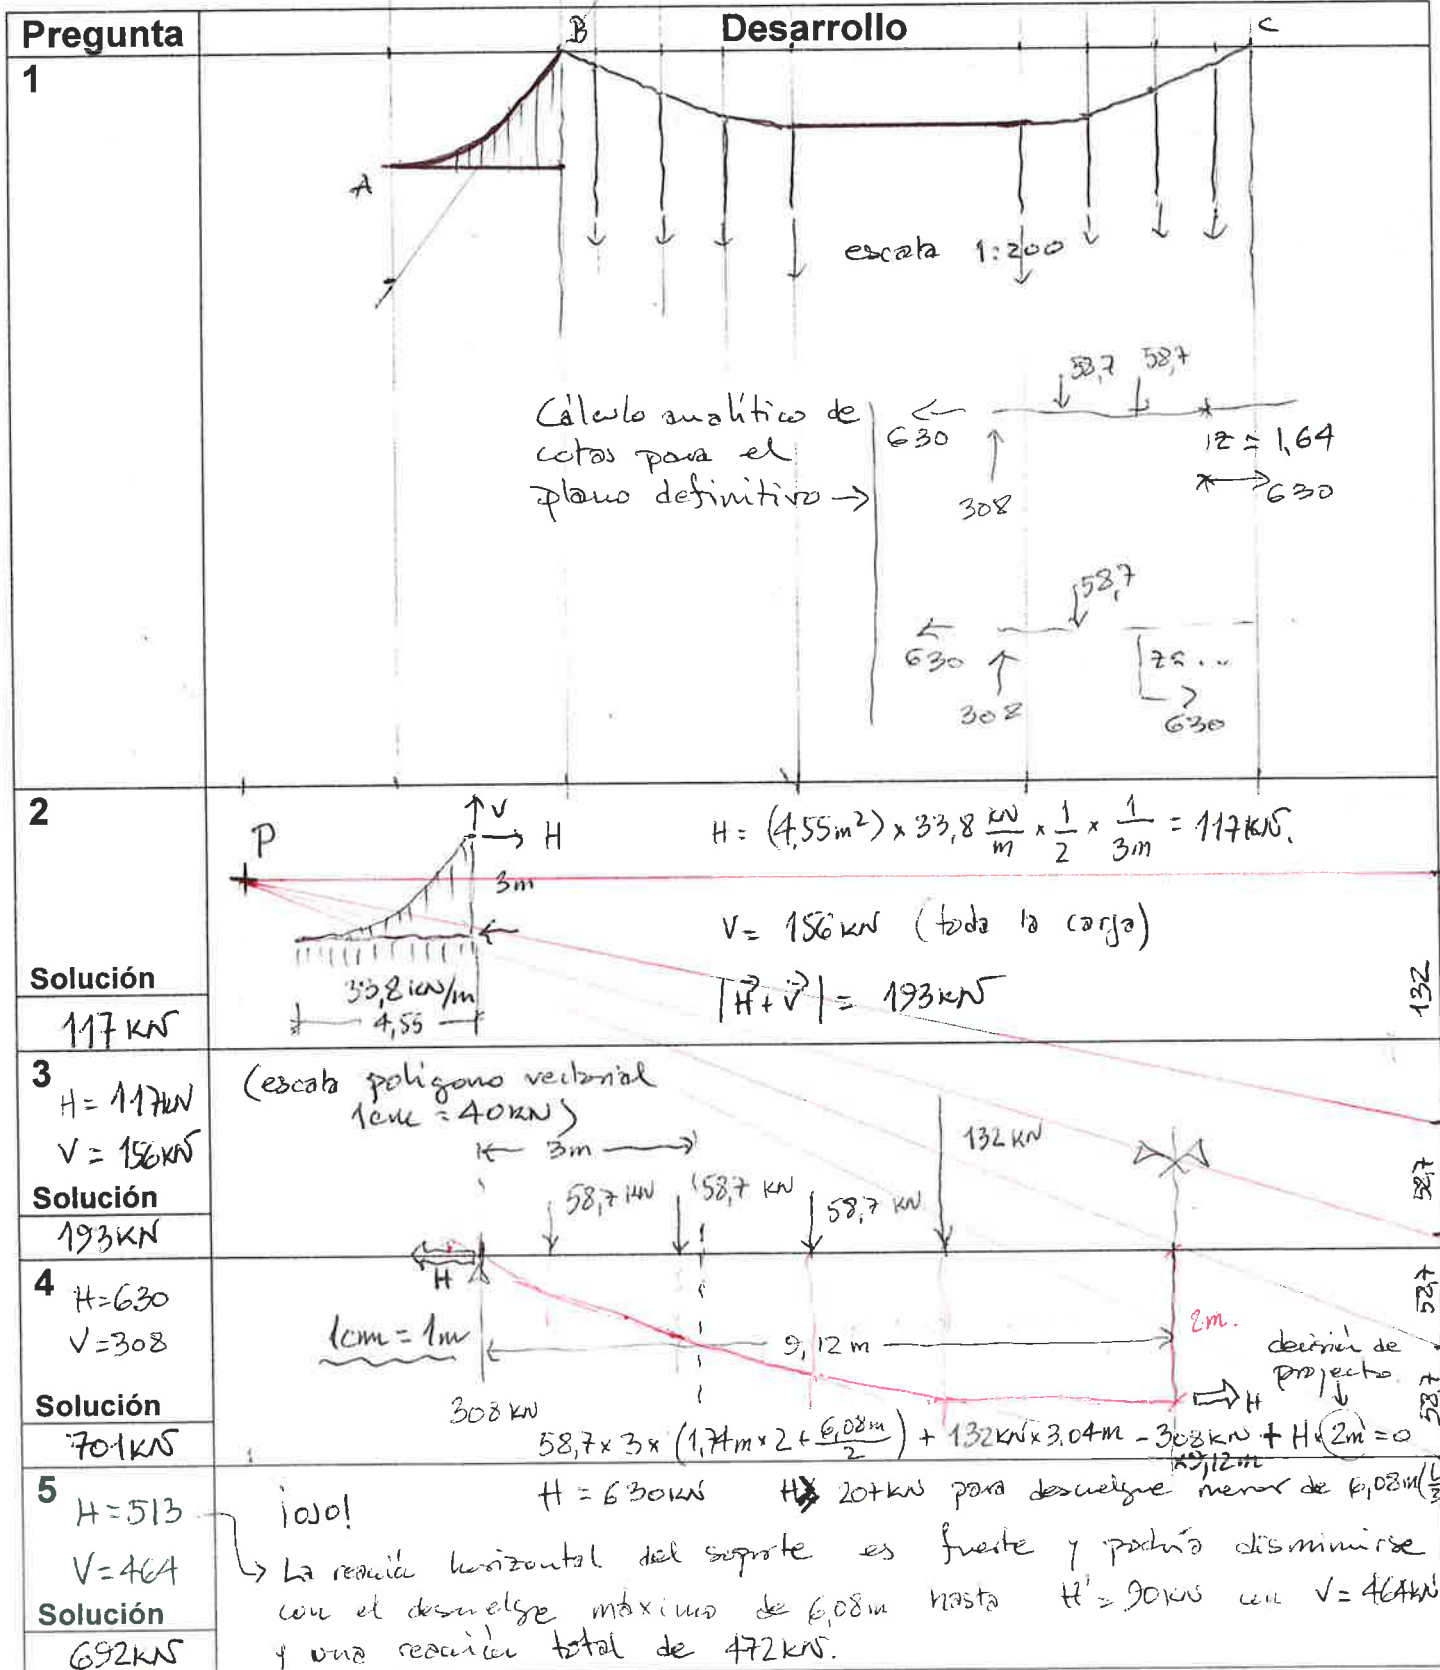 Pregunta
Desarrollo
1
B
C
A
escala 1:200
Cálculo analítico de
cotas para el
plano definitivo →
58,7 58,7
630
308
z = 1,64
630
58,7
630
308
z = ...
630
2
P
V
H
3m
33,8 kN/m
4,55
H = (4,55m²) × 33,8 kN/m × 1/2 × 1/3m = 117 kN.
V = 156 kN (toda la carga)
|H + V| = 193 kN
Solución
117 kN
132
3
H = 117kN
V = 156kN
Solución
193kN
(escala polígono vectorial
1cm = 40kN)
3m
58,7 kN
58,7 kN
58,7 kN
132 kN
58,7
4
H=630
V=308
Solución
701kN
H
1cm = 1m
9,12 m
2m.
decisión de
proyecto
H
58,7
58,7
308 kN
58,7 × 3 × (1,74m × 2 + 6,08m/2) + 132kN × 3.04m - 308kN × 9,12m + H · 2m = 0
5
H = 513
V = 464
Solución
692kN
H = 630kN
207kN para descuelgue menor de 6,08m (L/3
¡ojo!
La reacción horizontal del soporte es fuerte y podría disminuirse
con el descuelgue máximo de 6,08m hasta H' = 90kN con V = 464kN
y una reacción total de 472kN.